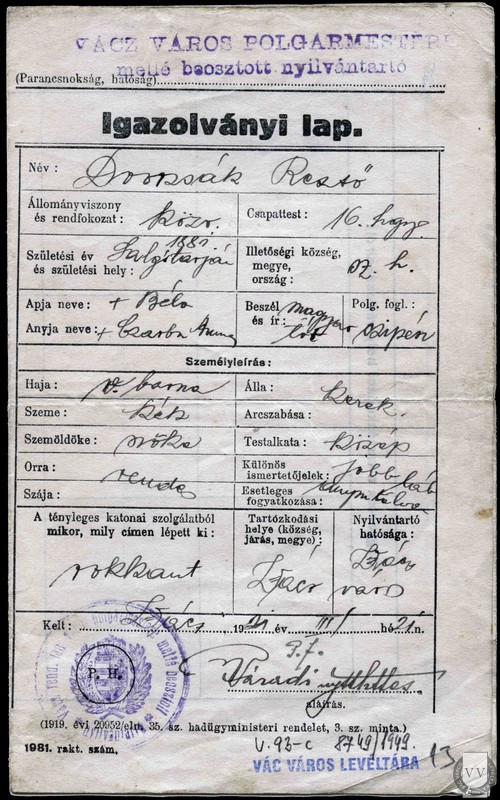 VÁCZ VÁROS POLGÁRMESTERE
mellé beosztott nyilvántartó
(Parancsnokság, hatóság)
Igazolványi lap.
Név: Dvorzsák Rezső
Állományviszony és rendfokozat: közv.
Csapattest: 16.
Születési év és születési hely: 1881. Salgótarján
Illetőségi község, megye, ország:
Apja neve: + Béla
Anyja neve: + Anna
Beszél és ír: magyar tót
Polg. fogl.:
Személyleírás:
Haja: v. barna
Álla: kerek.
Szeme: kék
Arcszabása:
Szemöldöke: szőke
Testalkata: közép
Orra: rendes
Különös ismertetőjelek: jobb láb
Szája:
Esetleges fogyatkozása:
A tényleges katonai szolgálatból mikor, mily címen lépett ki: rokkant
Tartózkodási helye (község, járás, megye): Vác
Nyilvántartó hatósága: Vác város
Kelt: Vác 1921 év III/ hó 21 n.
P. H.
Váradi
aláírás.
(1919. évi 20952/eln. 35. sz. hadügyminiszteri rendelet, 3. sz. minta.)
1981. rakt. szám.
V. 93-c 8749/1949.
VÁC VÁROS LEVÉLTÁRA
13
VV